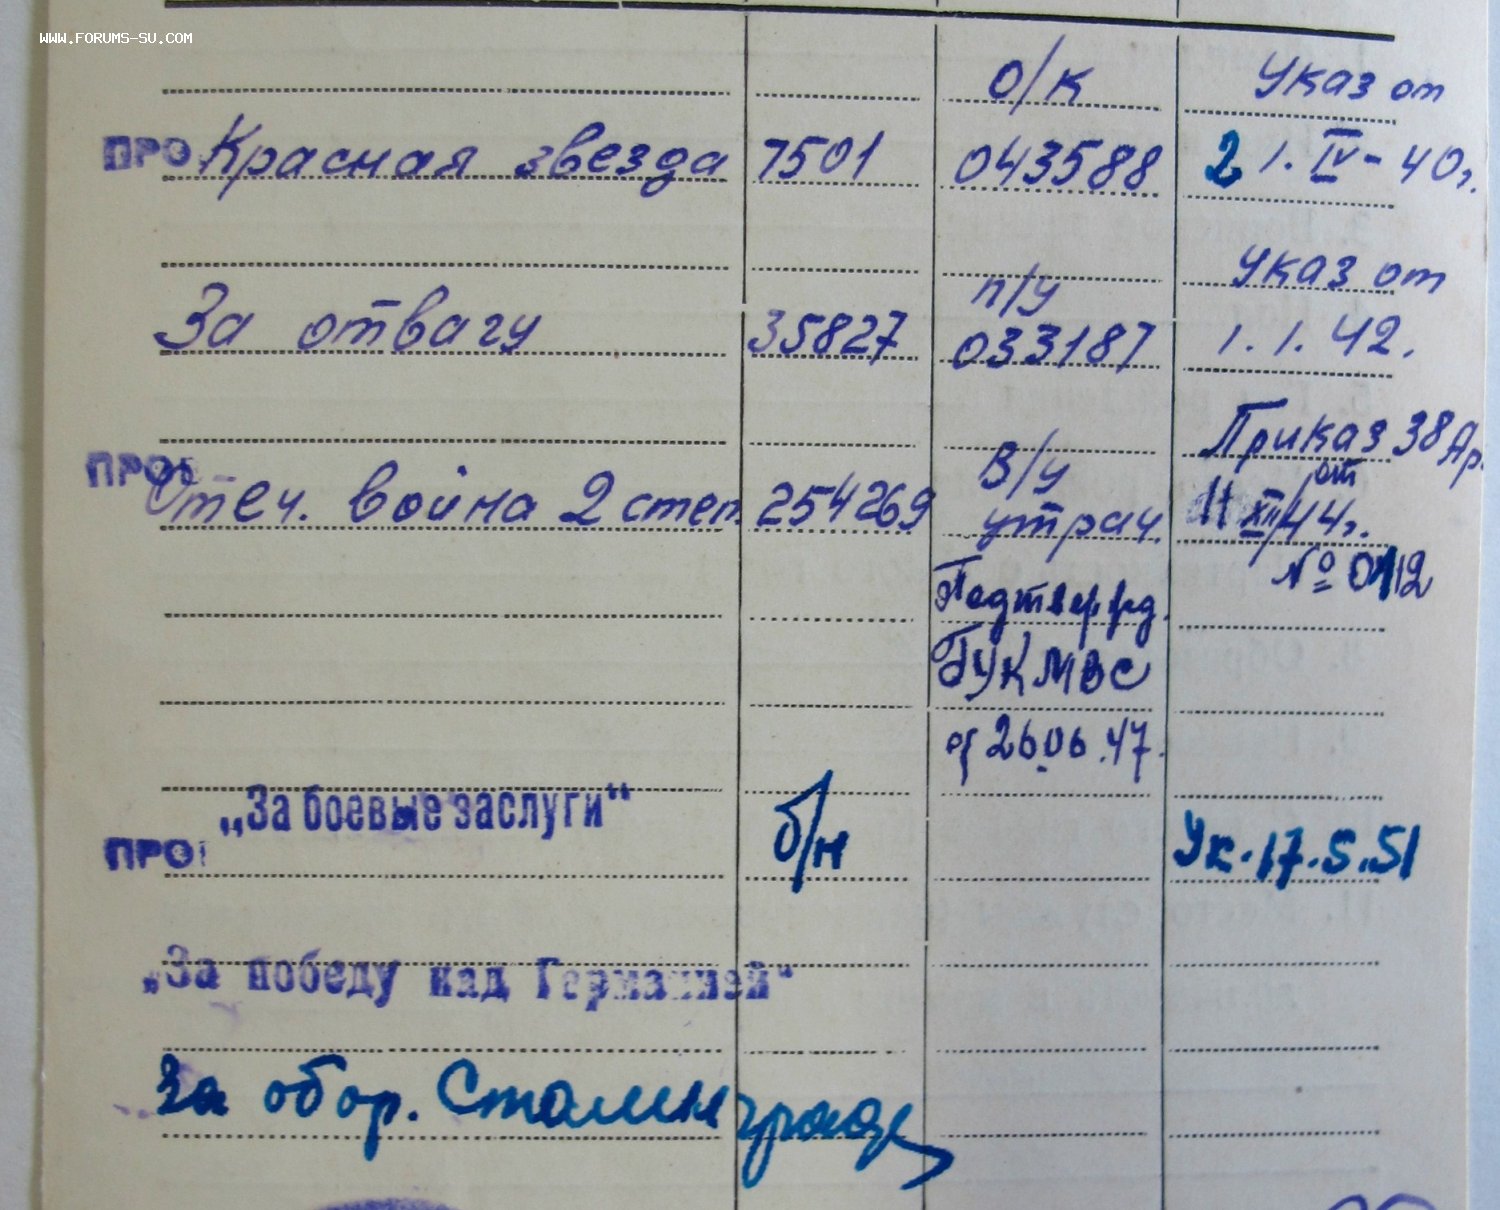 WWW.FORUMS-SU.COM
О/К Указ от
ПРО Красная звезда 7501 043588 21.IV-40г.
п/у Указ от
За отвагу 35827 033187 1.1.42.
Приказ 38 Ар.
ПРО Отеч. война 2 степ. 254269 В/у утрач. от 11/XII/44г.
№ 0112
Подтвержд.
ГУК МВС
от 26.06.47.
„За боевые заслуги“
ПРО б/н Ук. 17.5.51
„За победу над Германией“
За обор. Сталинграда